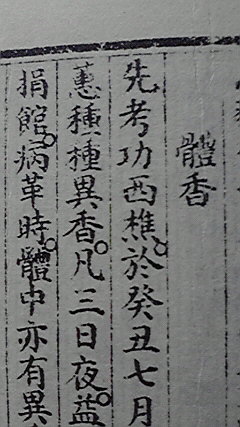 體香
先考功西樵。於癸丑七月
蕙種種異香。凡三日夜。益
捐館。病革時。體中亦有異